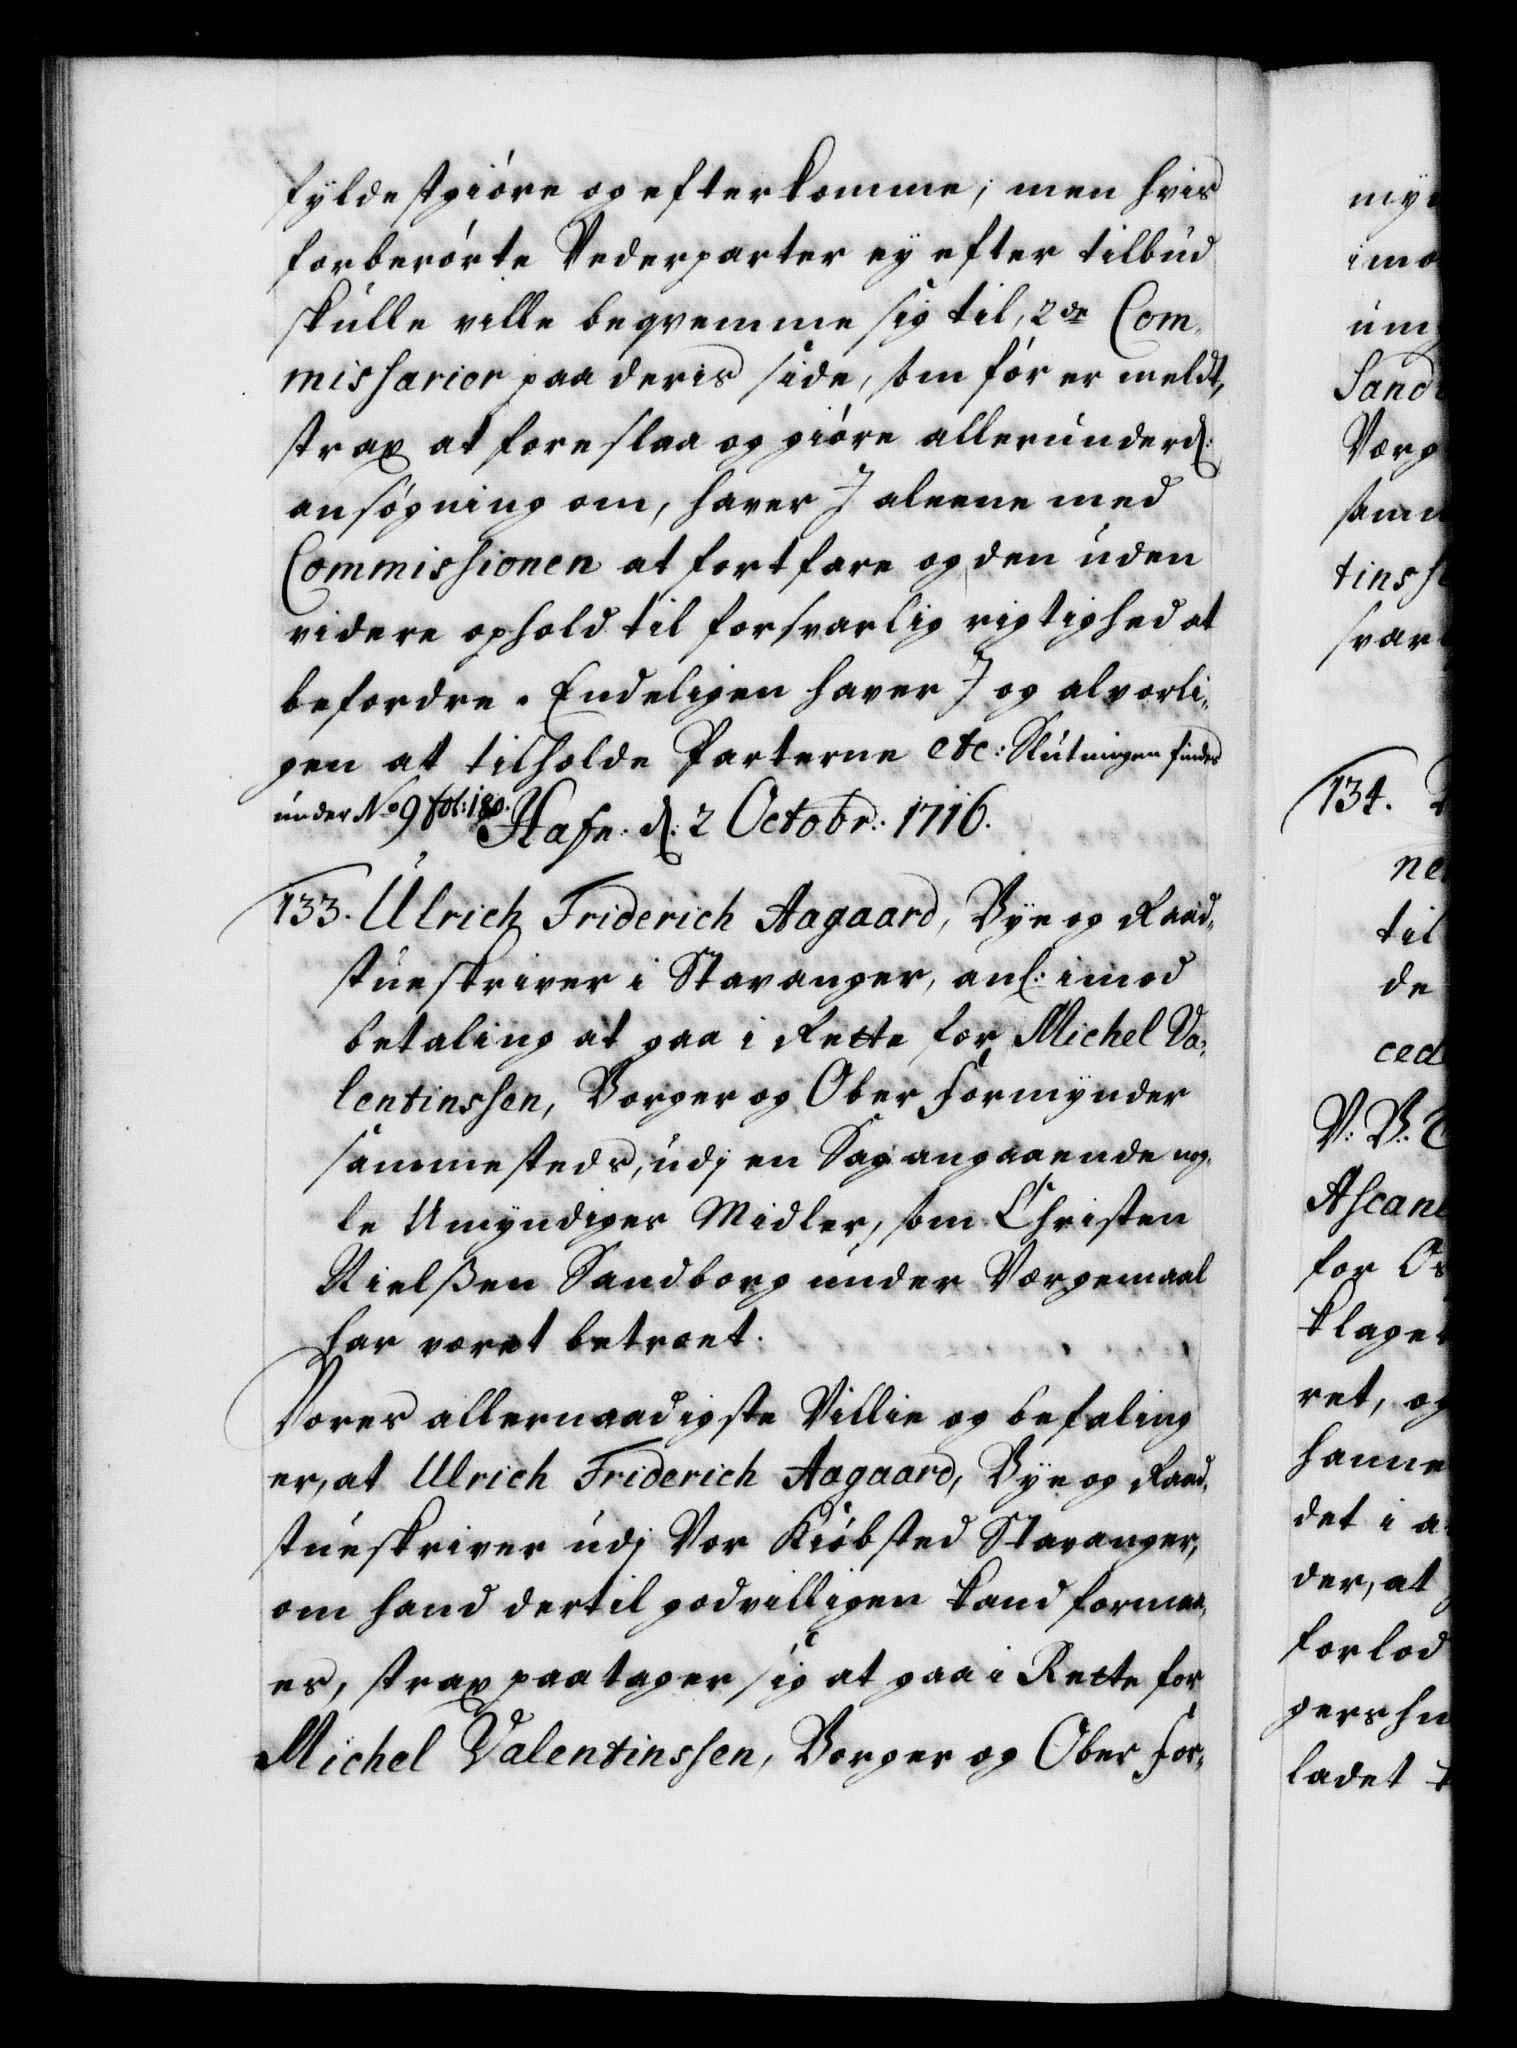 fyldestgiøre og efterkomme; men hvis
forberørte Vederparter ey efter tilbud
skulle ville beqvemme sig til, 2de Com-
missarier paa deris side, som før er meldt,
strax at foreslaa og giøre allerunderd:
ansøgning om, haver I aleene med
Commissionen at fortfare og den uden
videre ophold til forsvarlig rigtighed at
befordre. Endeligen haver I og alvorli-
gen at tilholde Parterne etc: Slutningen findes
under No 9 fol: 180.
Hafn: d: 2 Octobr: 1716.
133. Ulrich Friderich Aagaard, Bye og Raad-
stueskriver i Stavanger, anl: imod
betaling at gaa i Rette for Michel Va-
lentinssen, Borger og Ober Formynder
sammesteds, udj en Sag angaaende nog-
le Umyndiges Midler, som Christen
Nielßen Sandborg under Værgemaal
har været betroet.
Vores allernaadigste Villie og befaling
er, at Ulrich Friderich Aagaard, Bye og Raad-
stueskriver udj Vor Kiøbsted Stavanger,
om hand dertil godvilligen kand formaa-
es, strax paatager sig at gaa i Rette for
Michel Valentinssen, Borger og Ober For-
imo
Sand
Værg
tinsse
svar
134.
til
de
ced
V: B:
Ascan
for
klage
ret, og
hanne
det i a
der, at
forlod
ladet